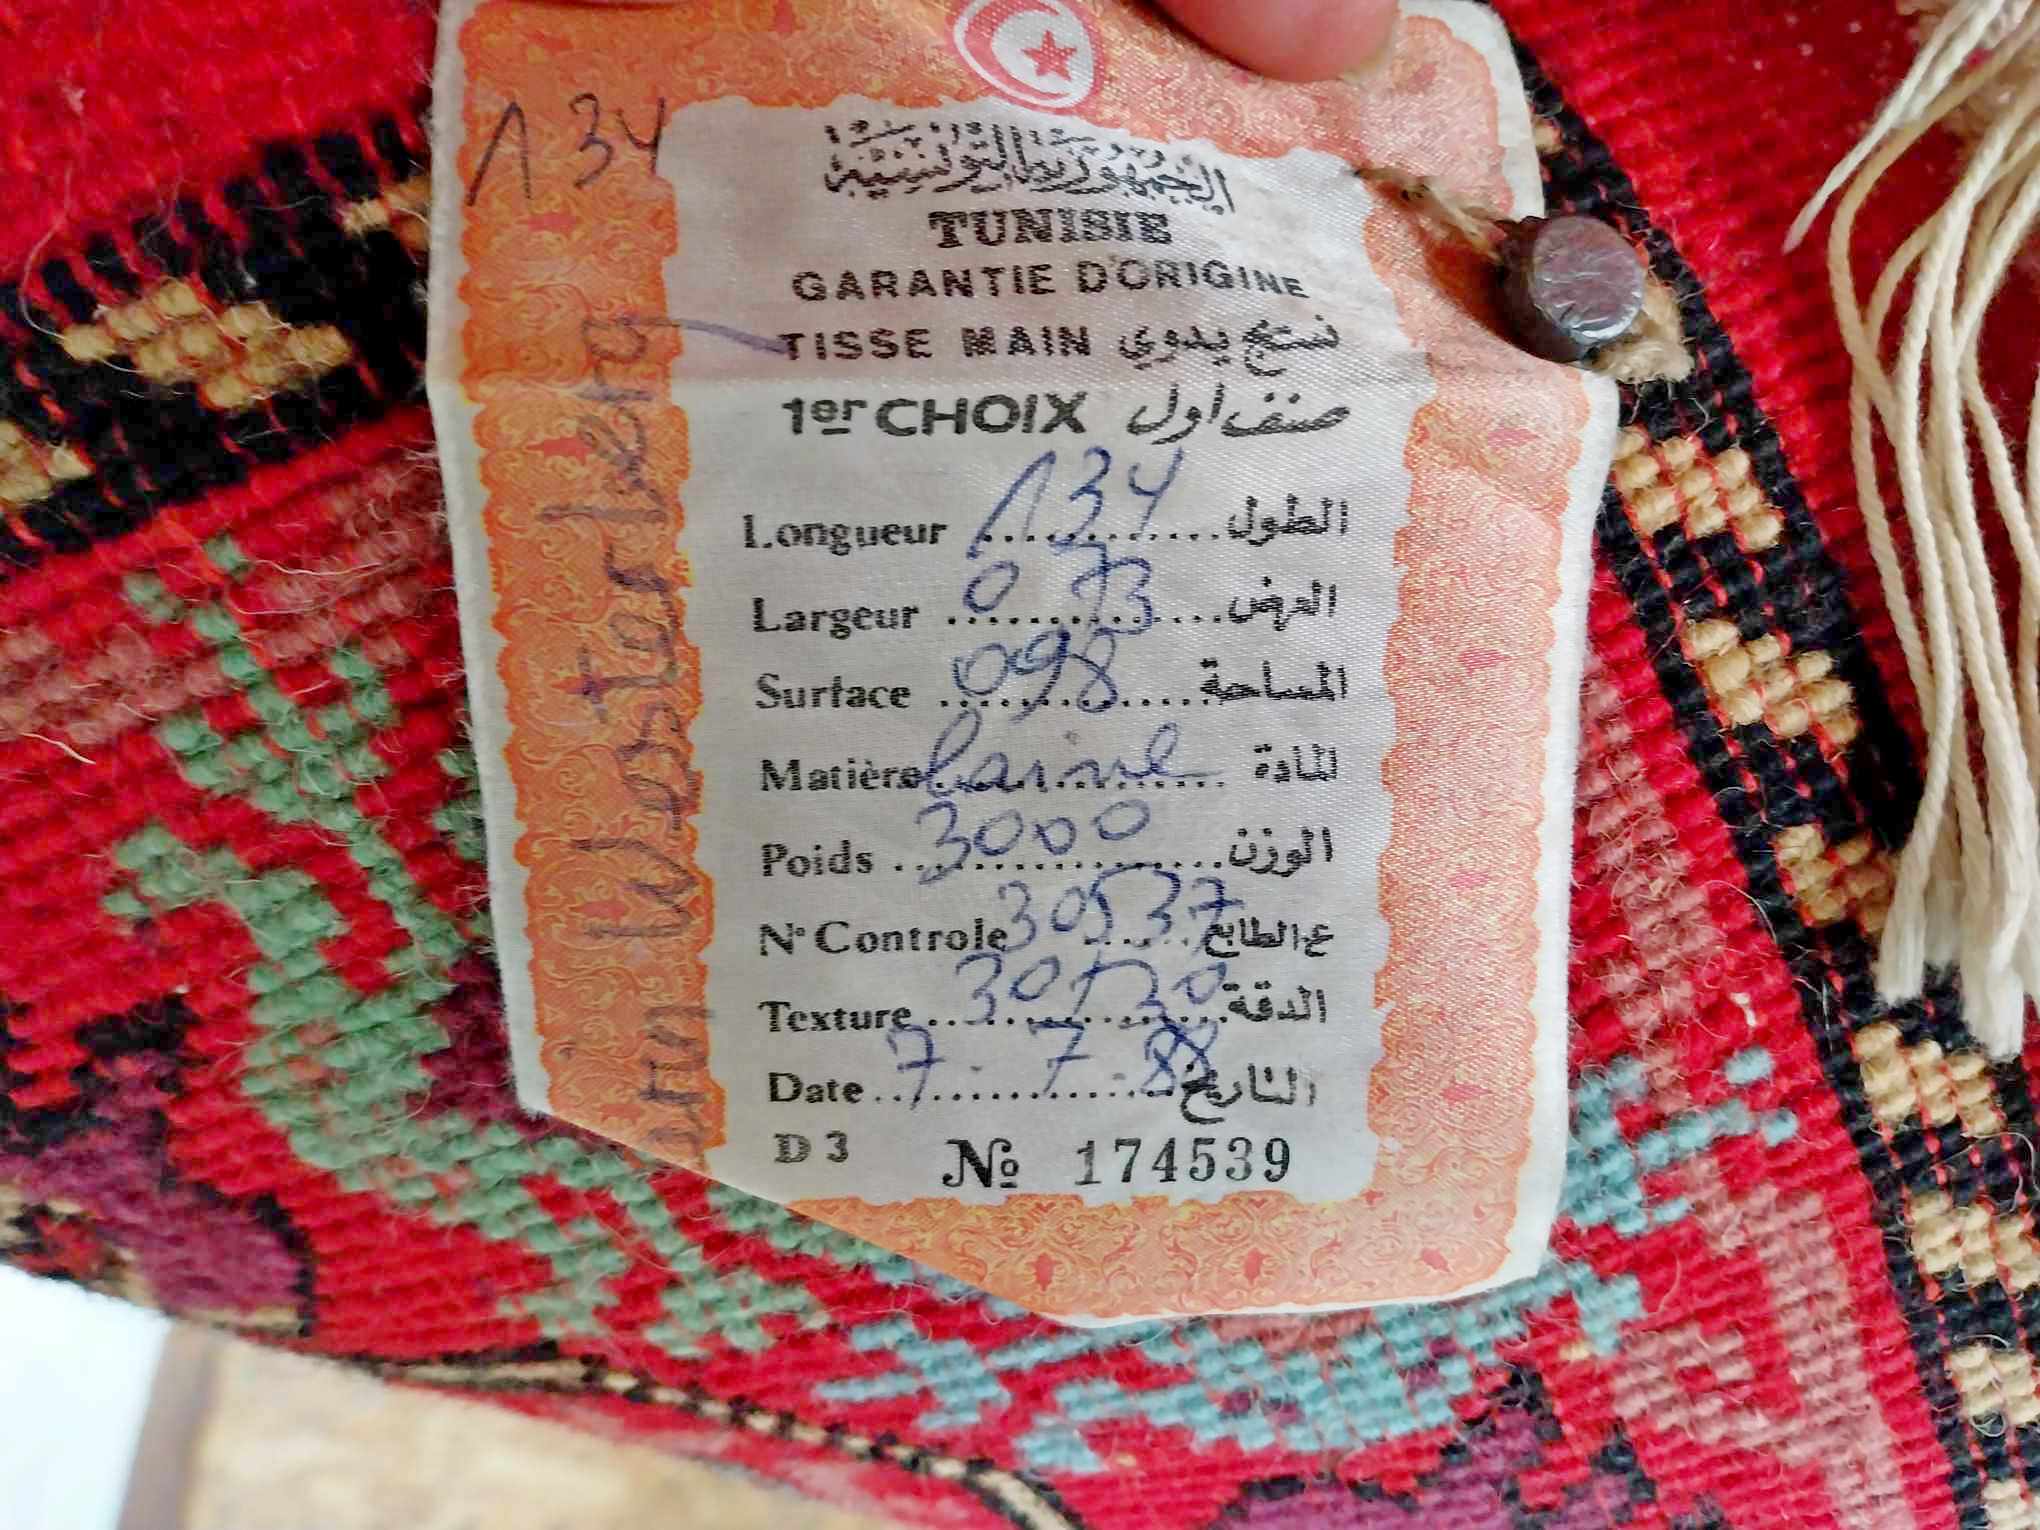 134
الجمهورية التونسية
TUNISIE
GARANTIE D'ORIGINE
TISSE MAIN نسج يدوي
1er CHOIX صنف اول
Longueur 134 الطول
Largeur 0 73 العرض
Surface 098 المساحة
Matière laine المادة
Poids 3000 الوزن
No Controle 30537 ع.الطابع
Texture 30/30 الدقة
Date 7.7.88 التاريخ
D 3 No 174539
Westerberg